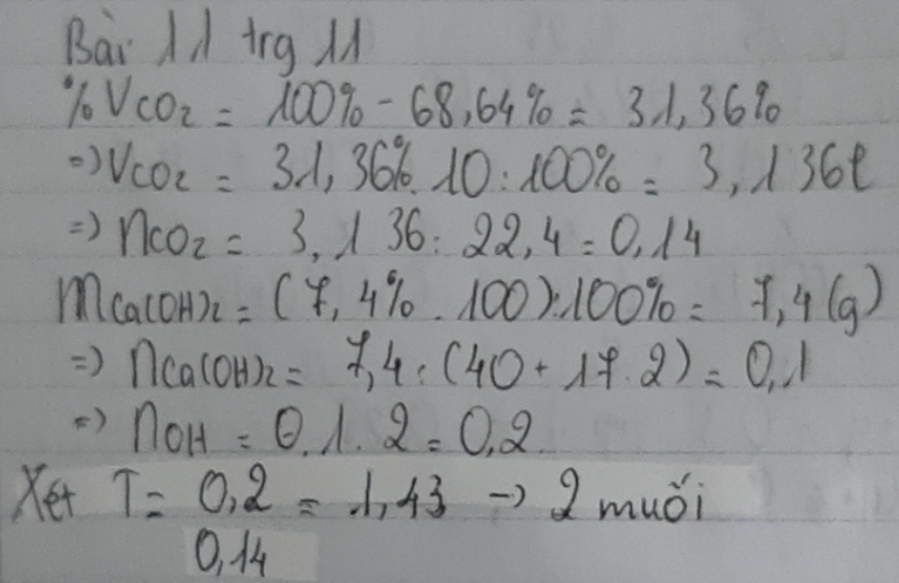 Bài 11 trg 11
%VCO2 = 100% - 68,64% = 31,36%
=> VCO2 = 31,36%.10:100% = 3,136l
=> nCO2 = 3,136:22,4 = 0,14
mCa(OH)2 = (7,4%.100):100% = 7,4(g)
=> nCa(OH)2 = 7,4:(40+17.2) = 0,1
=> nOH = 0,1.2 = 0,2
Xét T = 0,2/0,14 = 1,43 -> 2 muối